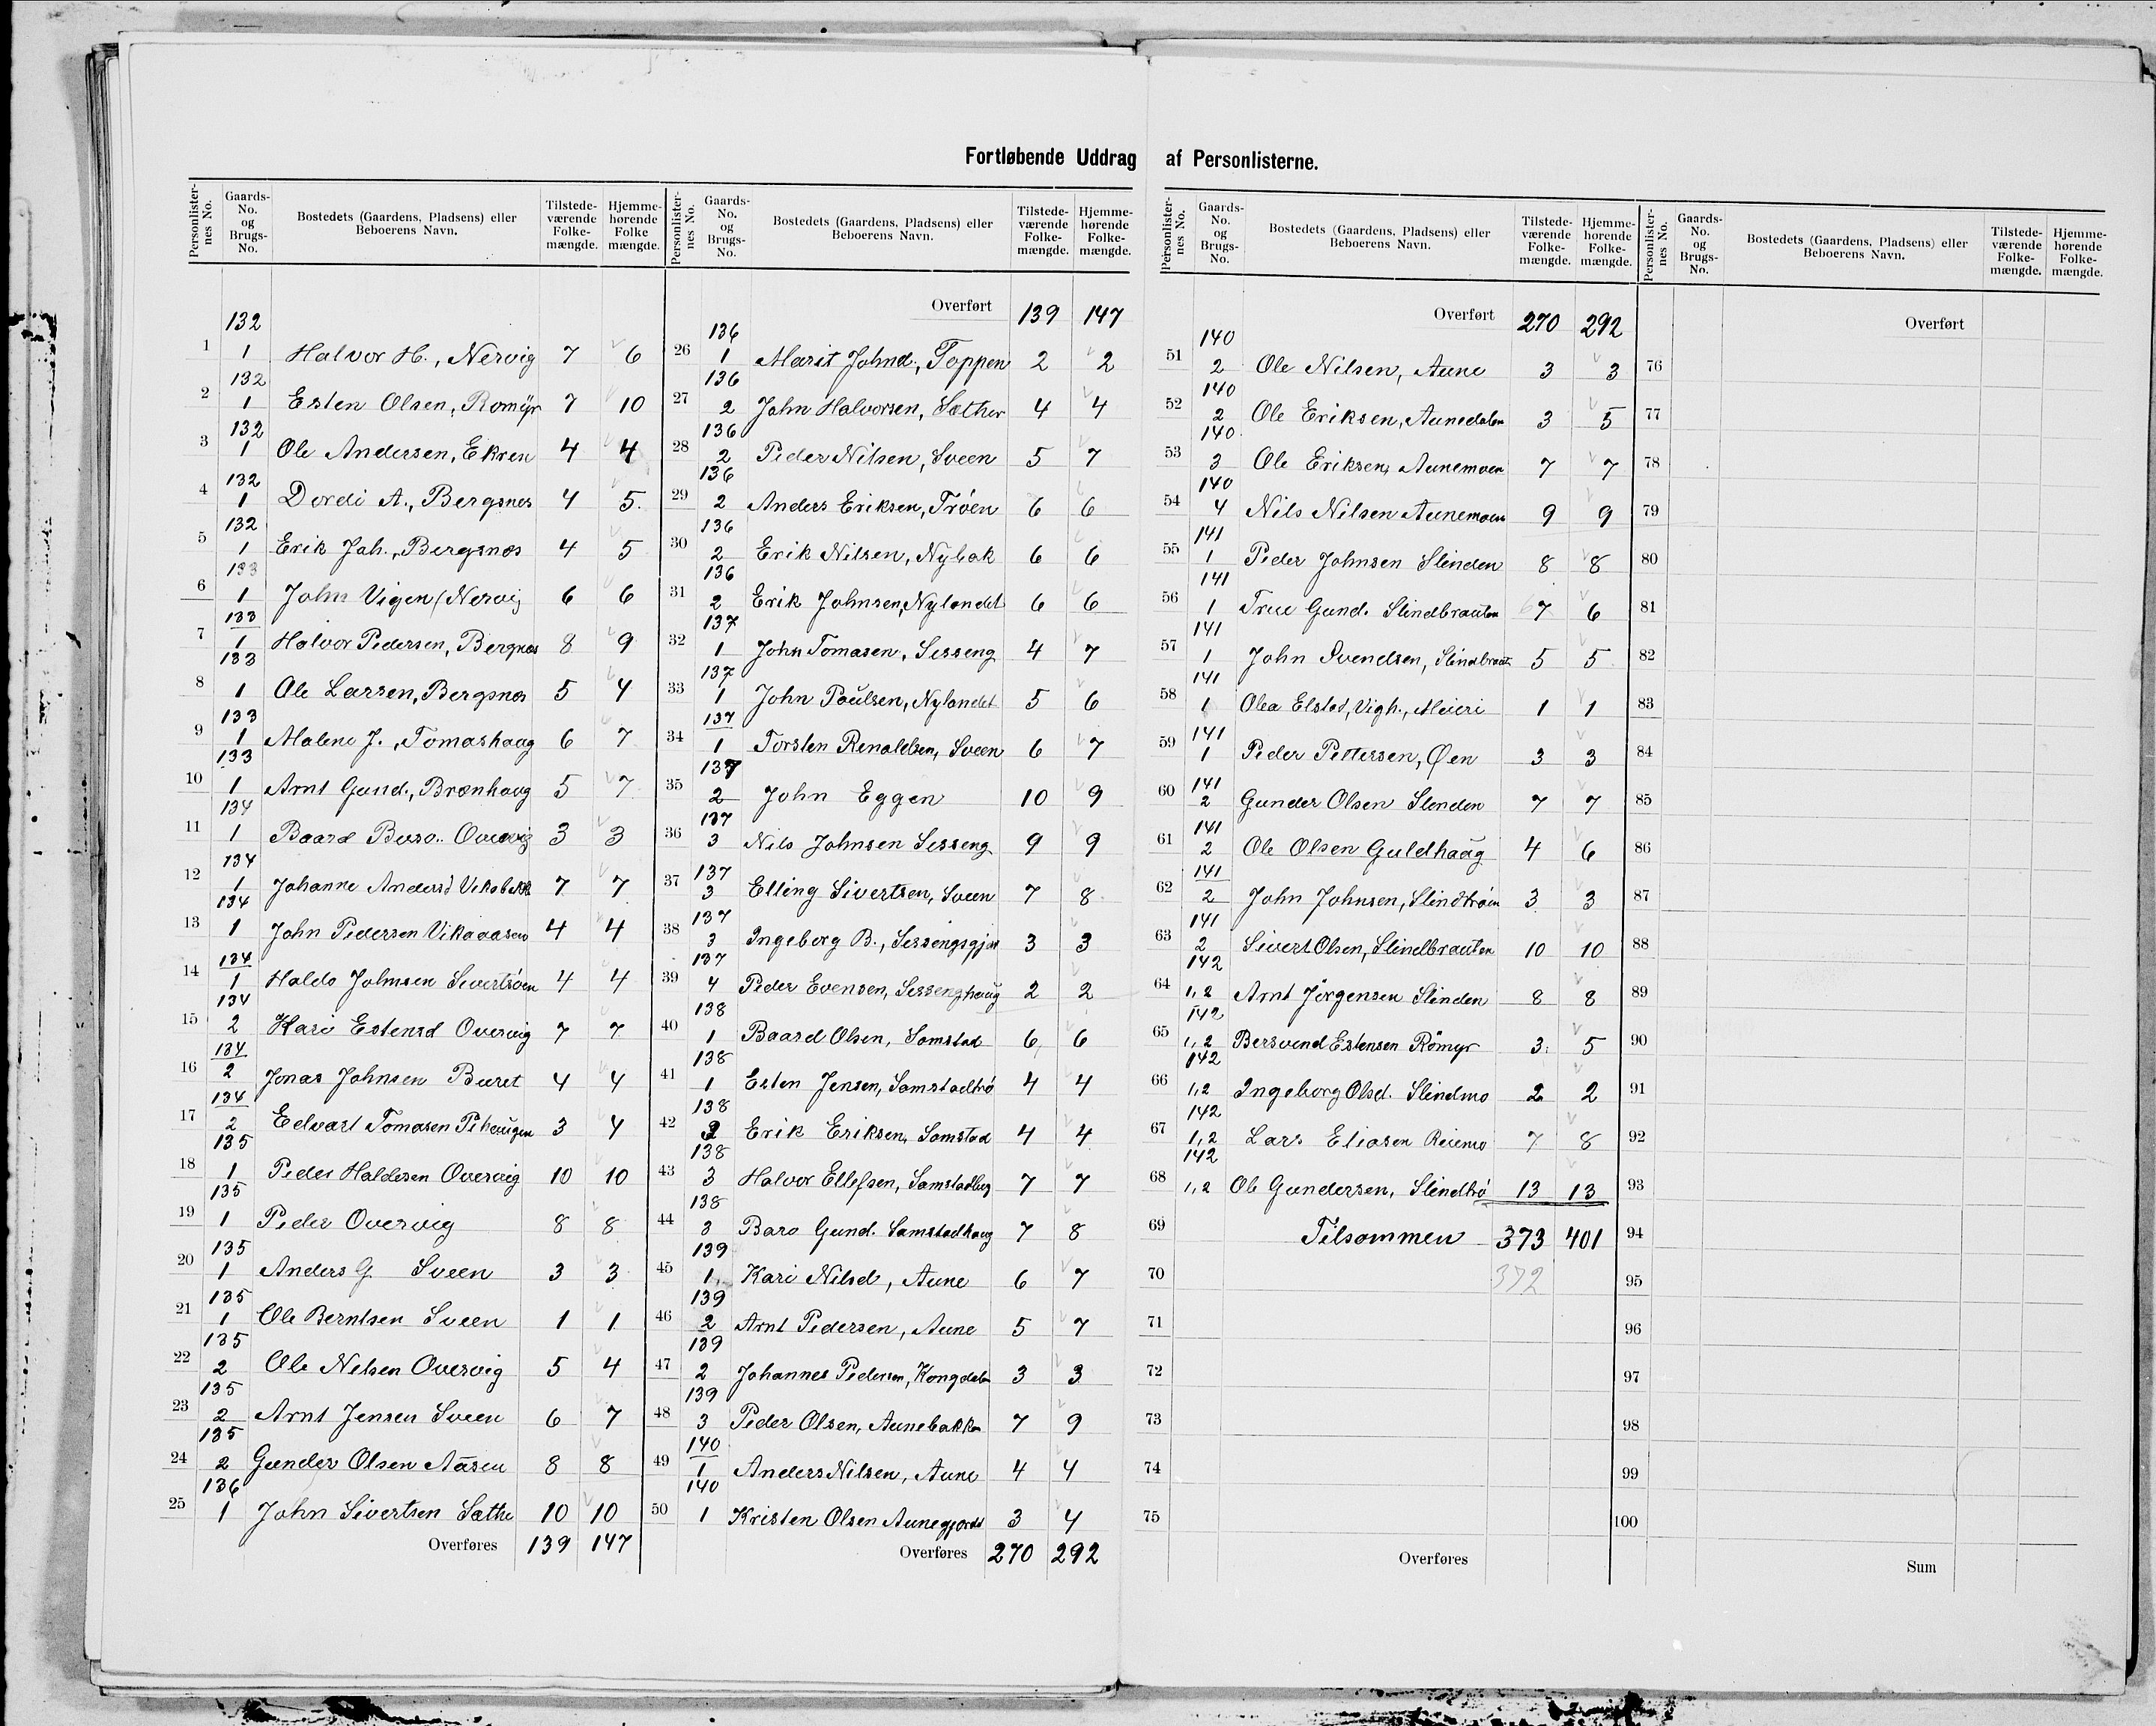 Fortløbende Uddrag af Personlisterne.
Personlisternes No. Gaards-No. og Brugs-No. Bostedets (Gaardens, Pladsens) eller Beboerens Navn. Tilstedeværende Folkemængde. Hjemmehørende Folke mængde.
1 132 1 Halvor H., Nervig 7 6
2 132 1 Esten Olsen, Romyr 7 10
3 132 1 Ole Andersen, Ekren 4 4
4 132 1 Dordi A., Bergsnes 4 5
5 132 1 Erik Joh., Bergsnes 4 5
6 133 1 John Vigen (Nervig 6 6
7 133 1 Halvor Pedersen, Bergnes 8 9
8 133 1 Ole Larsen, Bergsnes 5 4
9 133 1 Malene J., Tomashaug 6 7
10 133 1 Arnt Gund., Brænhaug 5 7
11 134 1 Baard 3 3
12 134 1 Johanne Andersd Vikabakk 7 7
13 134 1 John Pedersen Vikaaasen 4 4
14 134 1 Haldo Johnsen Sivertrøen 4 4
15 134 2 Kari Estensd Overvig 7 7
16 134 2 Jonas Johnsen Buret 4 4
17 134 2 Edvart Tomasen Pihaugen 3 4
18 135 1 Peder Haldesen Overvig 10 10
19 135 1 Peder Overvig 8 8
20 135 1 Anders G Sveen 3 3
21 135 1 Ole Berntsen Sveen 1 1
22 135 2 Ole Nelsen Overvig 5 4
23 135 2 Arnt Jensen Sveen 6 7
24 135 2 Gunder Olsen Aasen 8 8
25 136 1 John Sivertsen Sæthe 10 10
Overføres 139 147
Personlisternes No. Gaards-No. og Brugs-No. Bostedets (Gaardens, Pladsens) eller Beboerens Navn. Tilstedeværende Folkemængde. Hjemmehørende Folkemængde.
Overført 139 147
26 136 1 Marit Johnd., Toppen 2 2
27 136 2 John Halvorsen, Sæther 4 4
28 136 2 Peder Nilsen, Sveen 5 7
29 136 2 Anders Eriksen, Trøen 6 6
30 136 2 Erik Nilsen, Nybak 6 6
31 136 2 Erik Johnsen, Nylandet 6 6
32 137 1 John Tomasen, Sesseng 4 7
33 137 1 John Paulsen, Nylandet 5 6
34 137 1 Torsten Renaldsen, Sveen 6 7
35 137 2 John Eggen 10 9
36 137 3 Nils Johnsen Sesseng 9 9
37 137 3 Elling Sivertsen, Sveen 7 8
38 137 3 Ingeborg B., Sessengsgjær 3 3
39 137 4 Peder Evensen, Sessenghaug 2 2
40 138 1 Baard Olsen, Samstad 6 6
41 138 1 Esten Jensen, Samstadtrø 4 4
42 138 2 Erik Eriksen, Samstad 4 4
43 138 3 Halvor Ellefsen, Samstadbug 7 7
44 138 3 Baro Gund. Samstadhaug 7 8
45 139 1 Kari Nilsd, Aune 6 7
46 139 2 Arnt Pedersen, Aune 5 7
47 139 2 Johannes Pedersen, Kongsdalen 3 3
48 139 3 Peder Olsen, Aunebakken 7 9
49 140 1 Anders Nilsen, Aune 4 4
50 140 1 Kristen Olsen Aunegjordet 3 4
Overføres 270 292
Personlisternes No. Gaards-No. og Brugs-No. Bostedets (Gaardens, Pladsens) eller Beboerens Navn. Tilstedeværende Folkemængde. Hjemmehørende Folkemængde.
Overført 270 292
51 140 2 Ole Nilsen, Aune 3 3
52 140 2 Ole Eriksen, Aunedalen 3 5
53 140 3 Ole Eriksen, Aunemoen 7 7
54 140 4 Nils Nilsen Aunemoen 9 9
55 141 1 Peder Johnsen Slinden 8 8
56 141 1 True Gund. Slindbrauten 7 6
57 141 1 John Svendsen, Slindbraut 5 5
58 141 1 Olea Elstad, Vigh., Meieri 1 1
59 141 1 Peder Pettersen, Øen 3 3
60 141 2 Gunder Olsen Slenden 7 7
61 141 2 Ole Olsen Guldhaug 4 6
62 141 2 John Johnsen, Slindtrøen 3 3
63 141 2 Sivert Olsen, Slindbrauten 10 10
64 142 1,2 Arnt Jørgensen Slinden 8 8
65 142 1,2 Bersvend Estensen Römyr 3 5
66 142 1,2 Ingeborg Olsd. Slindmo 2 2
67 142 1,2 Lars Eliasen Reiemo 7 8
68 142 1,2 Ole Gundersen, Slindtrø 13 13
69 Tilsammen 373 401
70 372
71
72
73
74
75
Overføres
Personlisternes No. Gaards-No. og Brugs-No. Bostedets (Gaardens, Pladsens) eller Beboerens Navn. Tilstedeværende Folkemængde. Hjemmehørende Folkemængde.
Overført
76
77
78
79
80
81
82
83
84
85
86
87
88
89
90
91
92
93
94
95
96
97
98
99
100
Sum